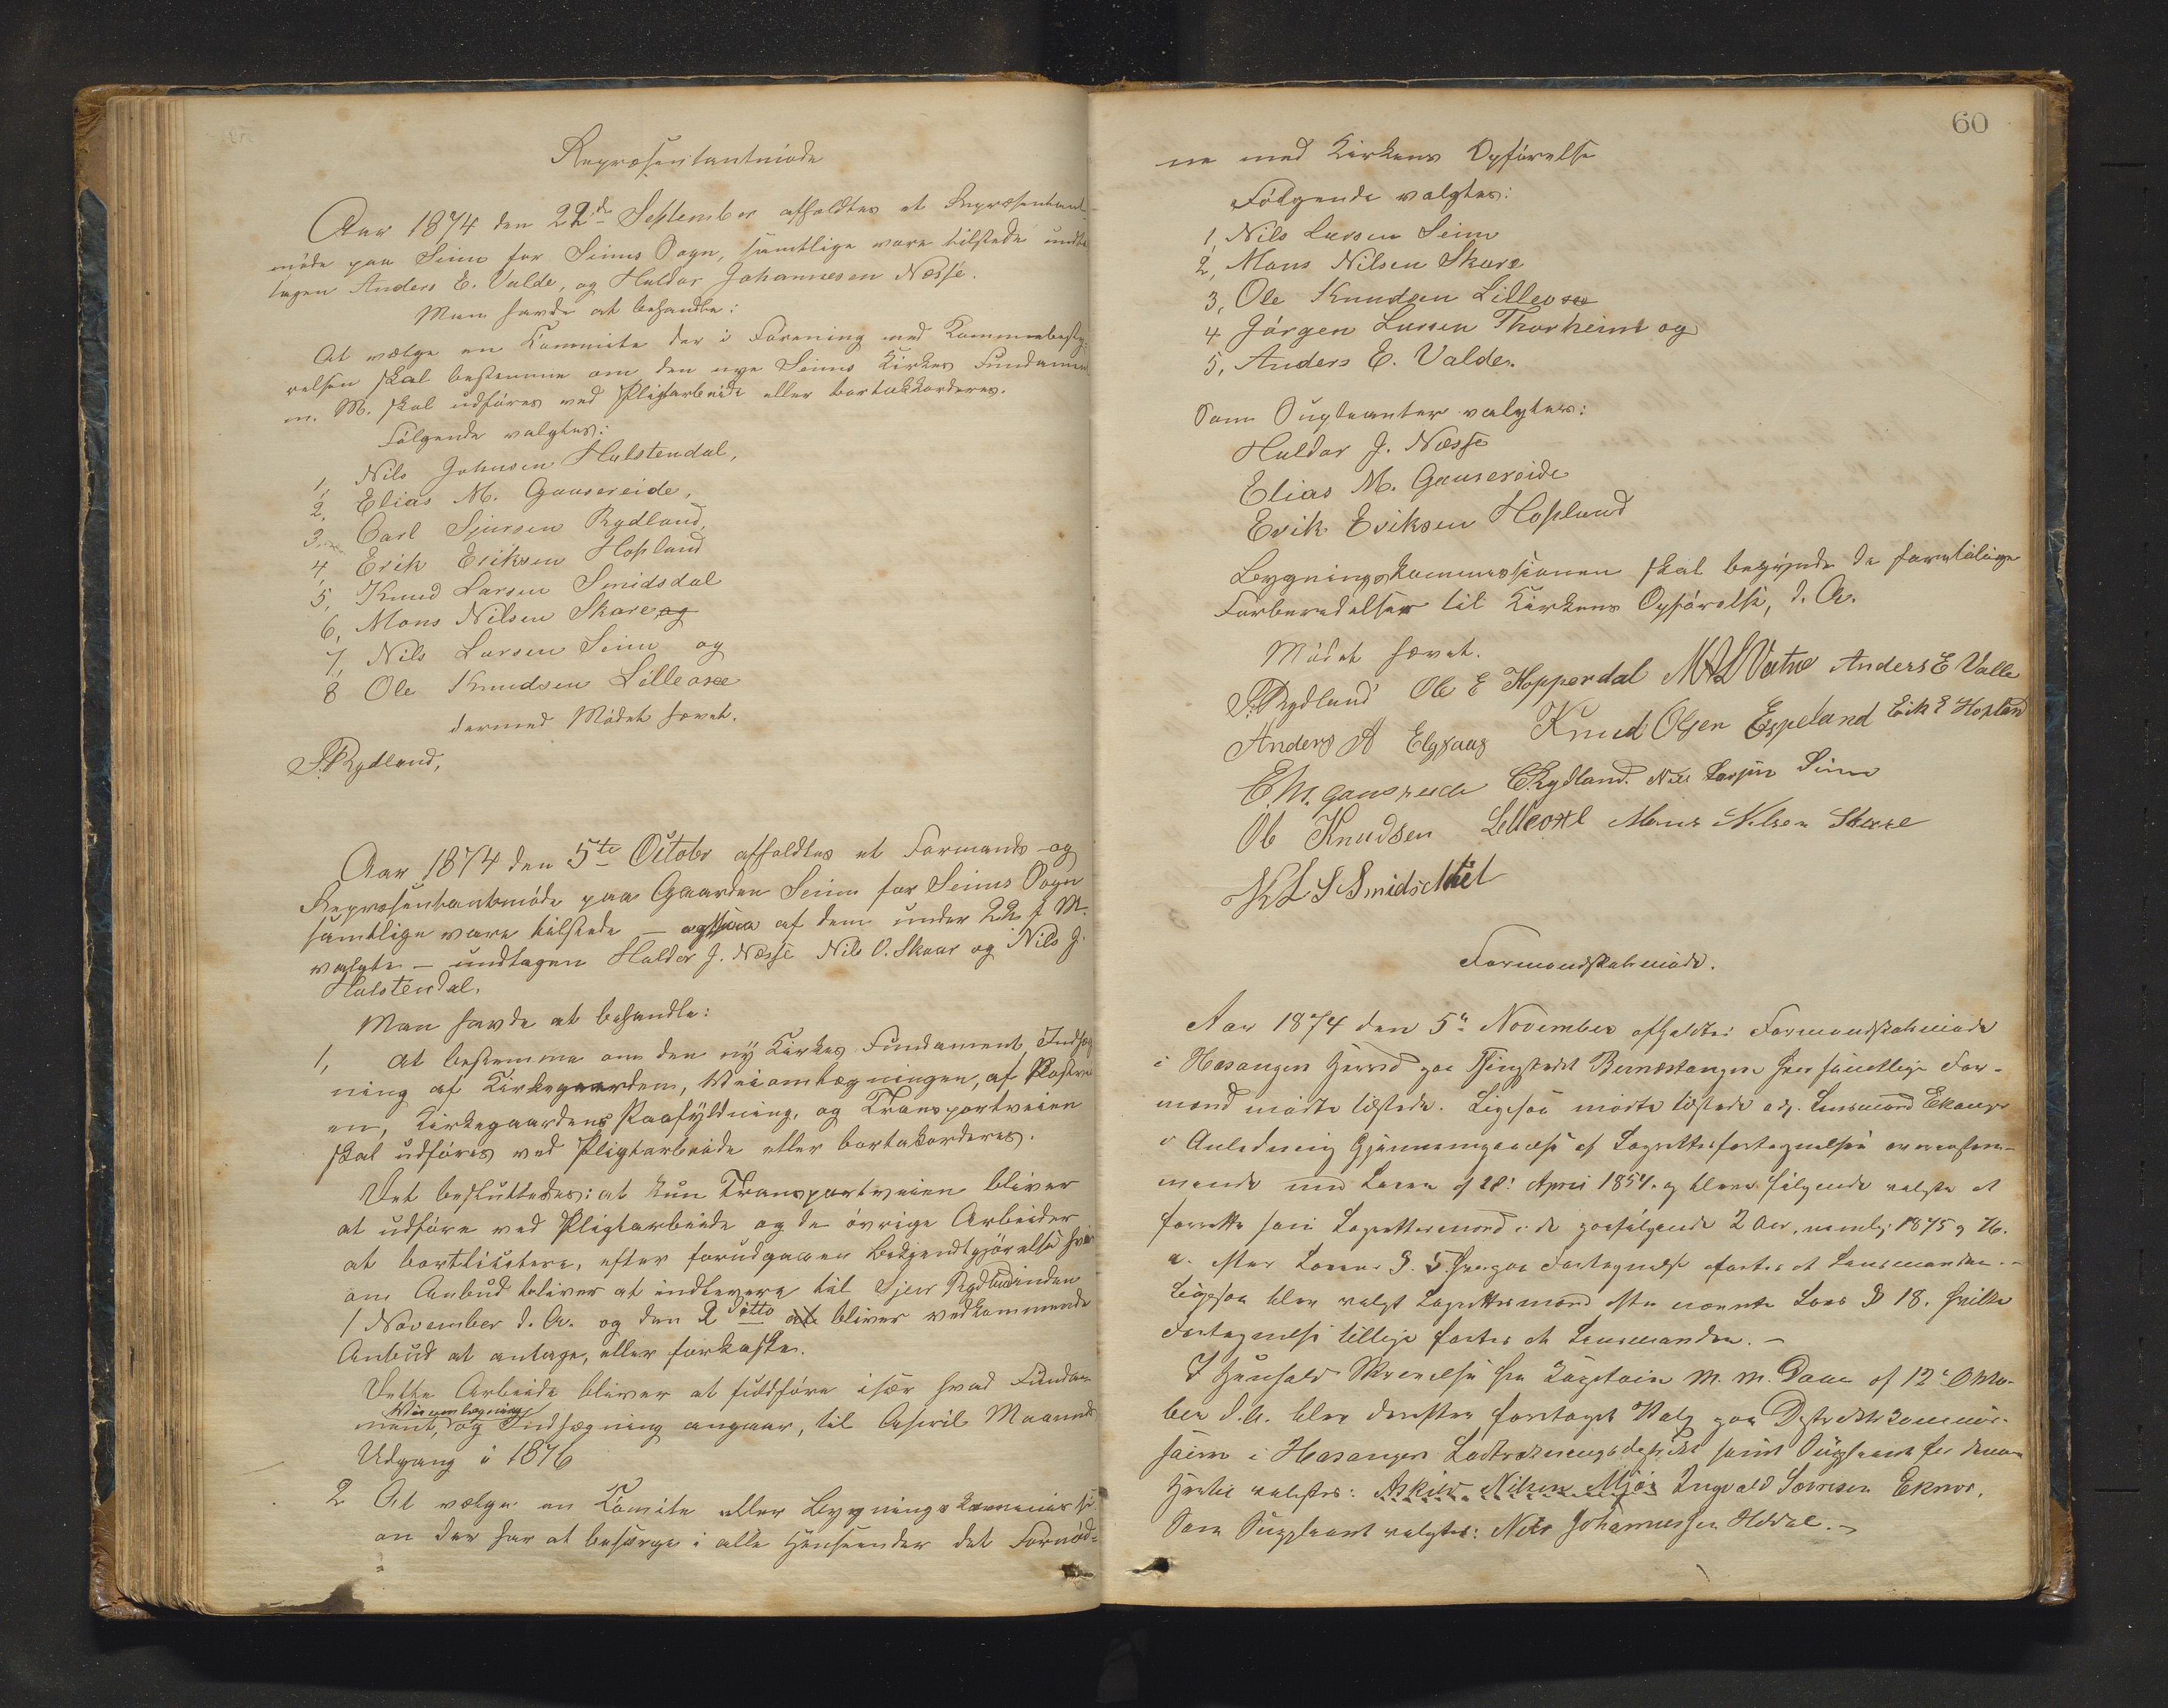 Repræsentantmøde
Aar 1874 den 22de September afholdtes et Repræsentant-
møde paa Seim for Seims Sogn, samtlige vare tilstede undta
tagen Anders E. Valde, og Haldor Johannesen Næsse.
Man havde at behandle:
At vælge en Kommite der i Forening med Kommunebesty-
relsen skal bestemme om den nye Seims Kirkes Fundament
m. M. skal udføres ved Pligtarbeide eller bortakkorderes.
Følgende valgtes:
1, Nils Johnsen Halstendal,
2, Elias M. Gausereide,
3, Carl Sjursen Rydland,
4 Erik Eriksen Hopland
5, Knud Larsen Smidsdal
6, Mons Nilsen Skare og
7, Nils Larsen Seim og
8 Ole Knudsen Lilleoxe
dermed Mødet hævet.
S. Rydland,
Aar 1874 den 5te October afholdtes et Formands- og
Repræsentantmøde paa Gaarden Seim for Seims Sogn
samtlige vare tilstede – ogsaa af dem under 22 f M.
valgte – undtagen Haldor J. Næsse Nils O. Skaar og Nils J.
Halstendal.
Man havde at behandle:
1, At bestemme om den ny Kirkes Fundament, Indhæg
ning af Kirkegaarden, Veiomlægningen, af
en, Kirkegaardens Paafyldning, og Transportveien
skal udføres ved Pligtarbeide eller bortakorderes.
Det besluttedes: at kun Transportveien bliver
at udføre ved Pligtarbeide og de øvrige Arbeider
at bortlicitere, efter forudgaaen Bekjendtgjørelse hvor
om Anbud bliver at indlevere til Sjur Rydland inden
1 November d. A. og den 2 ditto at bliver vedkommende
Anbud at antage, eller forkaste.
Dette Arbeide bliver at fuldføre især hvad Funda-
Veiomlægning
ment, og Indhægning angaar, til April Maaneds
Udgang i 1876
2 At vælge en Comite eller Bygningskommissi
on der har at besørge i alle Henseender det Fornød-
60
ne med Kirkens Opførelse
Følgende valgtes:
1, Nils Larsen Seim
2, Mons Nilsen Skare
3, Ole Knudsen Lilleoxe
4 Jørgen Larsen Thorheim og
5, Anders E. Valde.
Som Supleanter valgtes:
Haldor J. Næsse
Elias M. Gausereide
Erik Eriksen Hopland
Bygningskommissionen skal begynde de foreløbige
Forberedelser til Kirkens Opførelse, d. A.
Mødet hævet.
S. Rydland Ole E Hopperdal Anders E Valle
Anders A Elgsaas Knud Olsen Espeland Erik E Hopland
E. M. Gausereide C Rydland. Nils Larsen Seim
Ole Knudsen Lilleoxe Mons Nilsen Skare
K L S Smidsdal
Formandskabsmøde.
Aar 1874 den 5te November afholdtes Formandskabsmøde
i Hosanger Herred paa Thingstedet Bernestangen hvor samtlige For-
mænd mødte tilstede. Ligesaa mødte tilstede Lensmand Ekanger
i Anledning Gjennemgaaelse af Lagrettesfortegnelsen overensstem-
mende med Loven af 28. April 1854. og bleve følgende valgte at
forrette som Lagrettesmænd i de paafølgende 2 Aar, nemlig 1875 og 76.
a. efter Lovens § 5 Fortegnelse af Lensmanden.–
Ligesaa blev valgt Lagrettesmænd efter nævnte Lovs § 18. hvilke
Fortegnelse tillige af Lensmanden.–
I Henhold Skrivelse fra Kaptein M. M. Daae af 12te Okto-
ber d. A. blev derefter foretaget Valg paa
i Hosangers samt Supleant for denne
Hertil valgtes: Askild Nilsen Mjøs Ingvald Eknes.
Som Supleant valgtes: Nils Johannessen Hodal.–